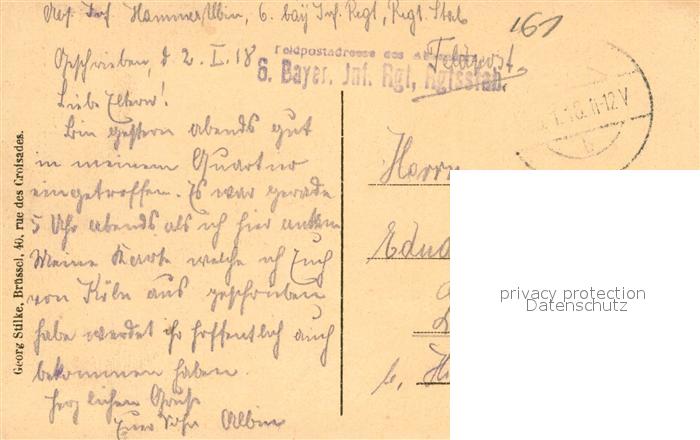 Abs. Inf. Hammer Albin, 6. bay Inf. Regt, Regt. Stab
161
Geschrieben, d. 2. I. 18
Feldpostadresse des
Feldpost.
6. Bayer. Inf. Rgt, Rgtsstab.
1.18. 11-12 V
b
Liebe Eltern!
Bin gestern abends gut
in meinem Quartier
eingetroffen. Es war gerade
5 Uhr abends als ich hier ankam
Meine Karte welche ich Euch
von Köln aus geschrieben
habe werdet ihr hoffentlich auch
bekommen haben.
Herzlichen Gruß
Euer Sohn Albin
Herrn
privacy protection
Datenschutz
Georg Stilke, Brüssel, 40, rue des Croisades.